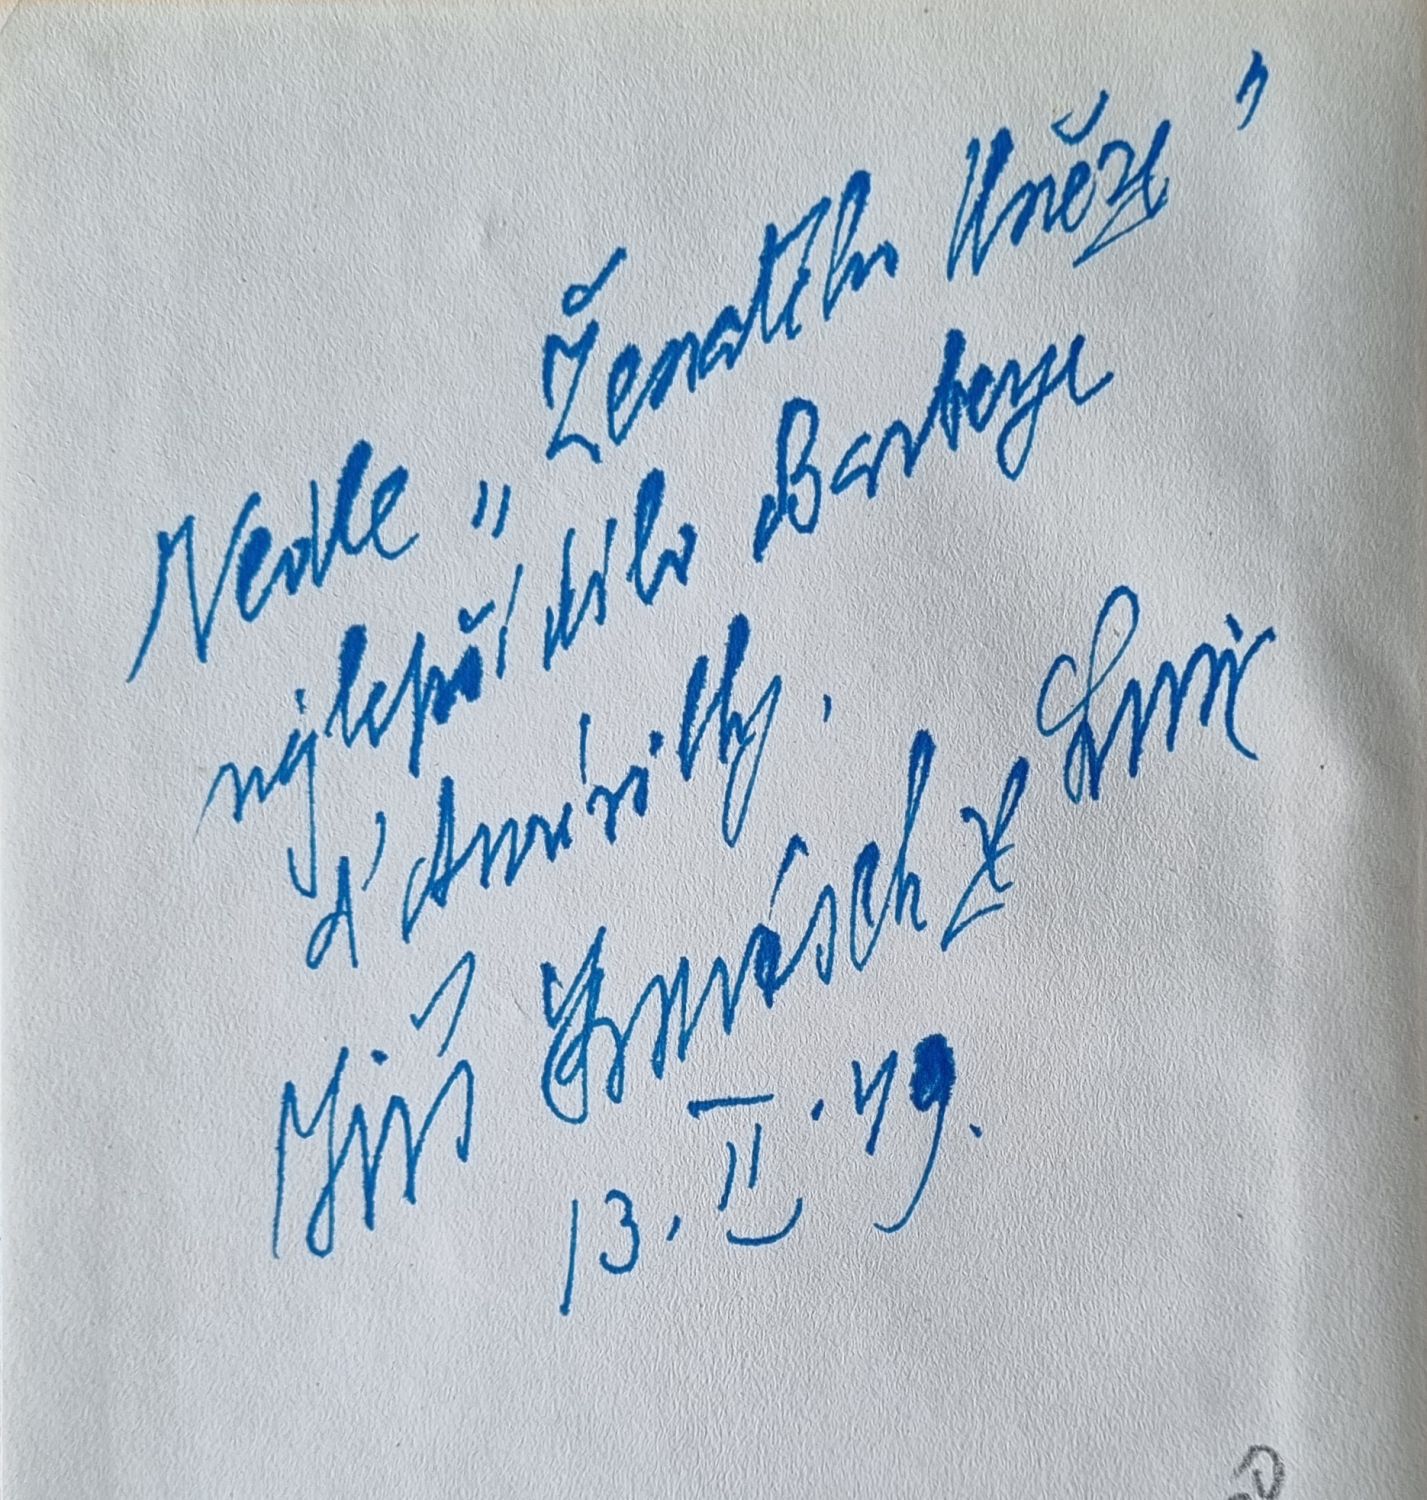 Vedle „Ženatého Kněze"
nejlepší dílo Barbeye
d'Aurévilly.
Jiří z
13. II. 79.